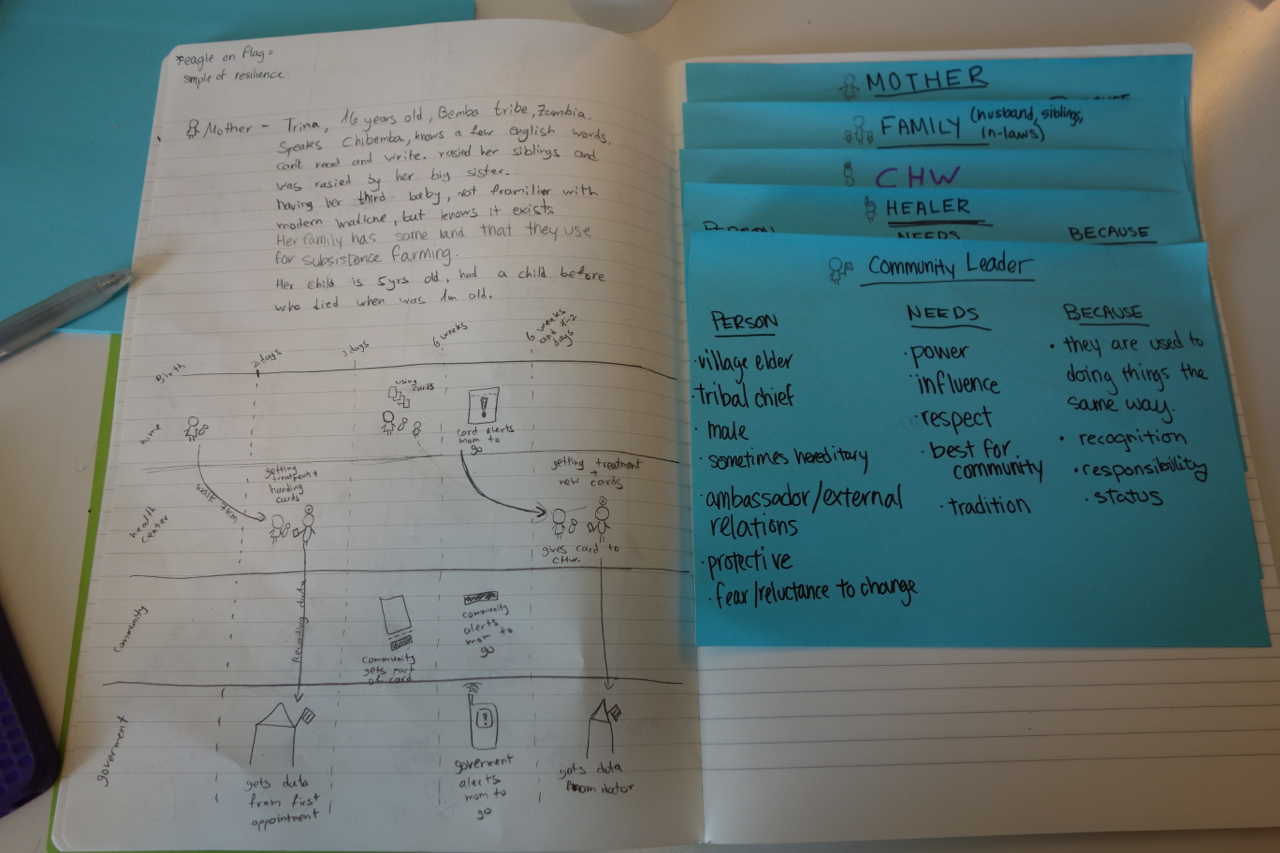 *eagle on flag =
smple of resilience
Mother - Trina, 16 years old, Bemba tribe, Zambia.
Speaks Chibemba, knows a few english words,
can't read and write. rasied her siblings and
was rasied by her big sister.
having her third baby, not framilier with
modern , but knows it exists
Her family has some land that they use
for subsistence farming.
Her child is 5yrs old, had a child before
who died when was 1m old.
Birth
2 days
3 days
6 weeks
6 weeks
and 1-2
days
home
using
cards
card alerts
mom to
go
walk 7km
health
center
getting
treatment +
handing
cards
getting treatment
+
new cards
gives card to
CHW.
Recording data
community
community
gets part
of card
community
alerts
mom to
go
goverment
gets data
from first
appointment
goverment
alerts
mom to
go
gets data
from dator
MOTHER
BECAUSE
FAMILY (husband, siblings,
in-laws)
CHW
HEALER
PERSON NEEDS BECAUSE
Community Leader
PERSON
·village elder
·tribal chief
· male
· sometimes hereditary
·ambassador/external
relations
·protective
· fear/reluctance to change
NEEDS
· power
· influence
· respect
· best for
community
· tradition
BECAUSE
· they are used to
doing things the
same way.
· recognition
· responsibility
· status